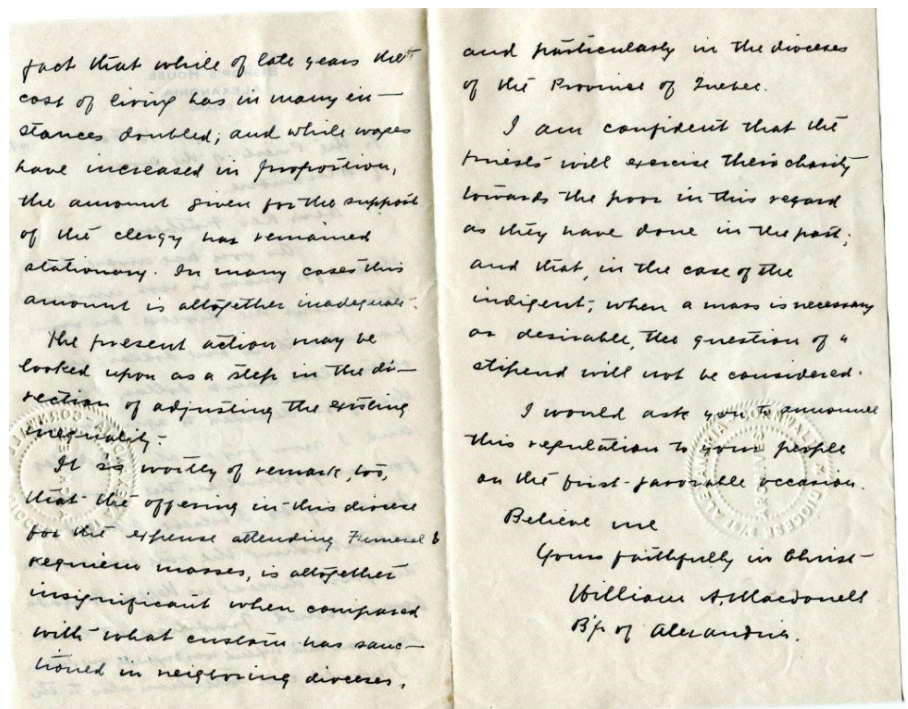 fact that while of late years the
cost of living has in many in-
stances doubled; and while wages
have increased in proportion,
the amount given for the support
of the clergy has remained
stationary. In many cases this
amount is altogether inadequate.
The present action may be
looked upon as a step in the di-
rection of adjusting the existing
inequality.
It is worthy of remark, too,
that the offering in this diocese
for the expense attending Funeral &
requiem masses, is altogether
insignificant when compared
with what custom has sanc-
tioned in neighboring dioceses,
and particularly in the dioceses
of the Province of Quebec.
I am confident that the
priests will exercise their charity
towards the poor in this regard
as they have done in the past;
and that, in the case of the
indigent, when a mass is necessary
or desirable, the question of a
stipend will not be considered.
I would ask you to announce
this regulation to your people
on the first favorable occasion.
Believe me
Yours faithfully in Christ
William A. Macdonell
Bp of Alexandria.